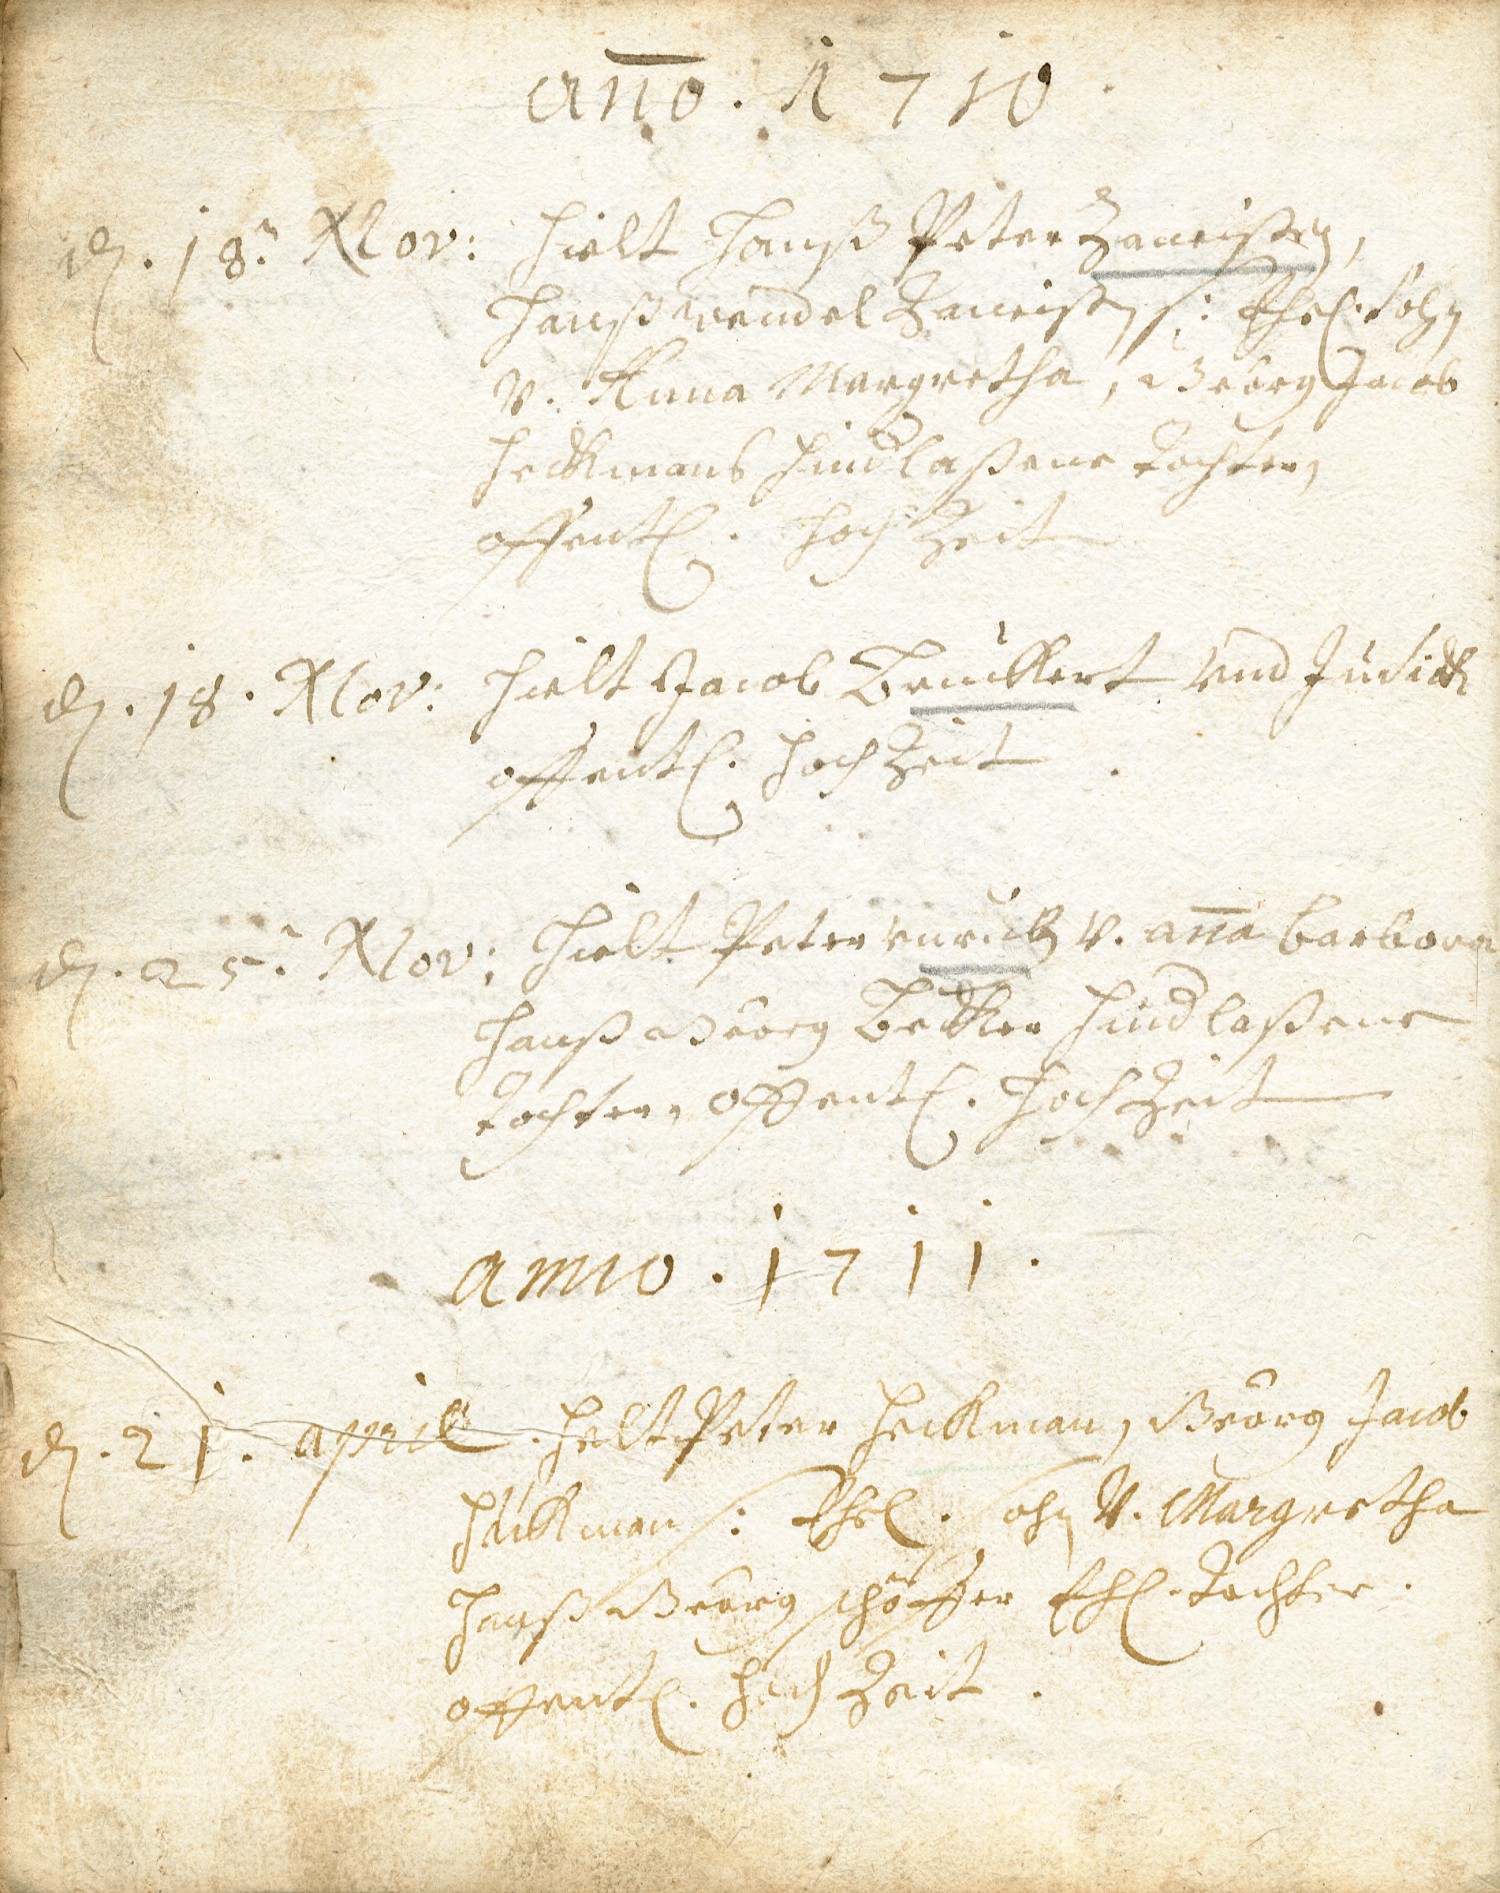 año. 1710.
d. 18. Nov: hielt Hanß Peter
Hanß wendel s: Ehel. Sohn
v. Anna Margretha, Georg Jacob
Heckmans hindlaßene tochter,
offentl. hochZeit
d. 18. Nov: hielt Jacob Bruckert Und Judith
offentl. hochZeit.
d. 25. Nov: hielt Peter v. aña barbara
Hanß Georg Becker hindlaßene
tochter, offentl. hochZeit
anno. 1711.
d. 21. april. helt Peter Heckman, Georg Jacob
Heckman s: Ehel. sohn V. Margretha
Hanß Georg schöffer Ehl. tochter.
offentl. hochZeit.